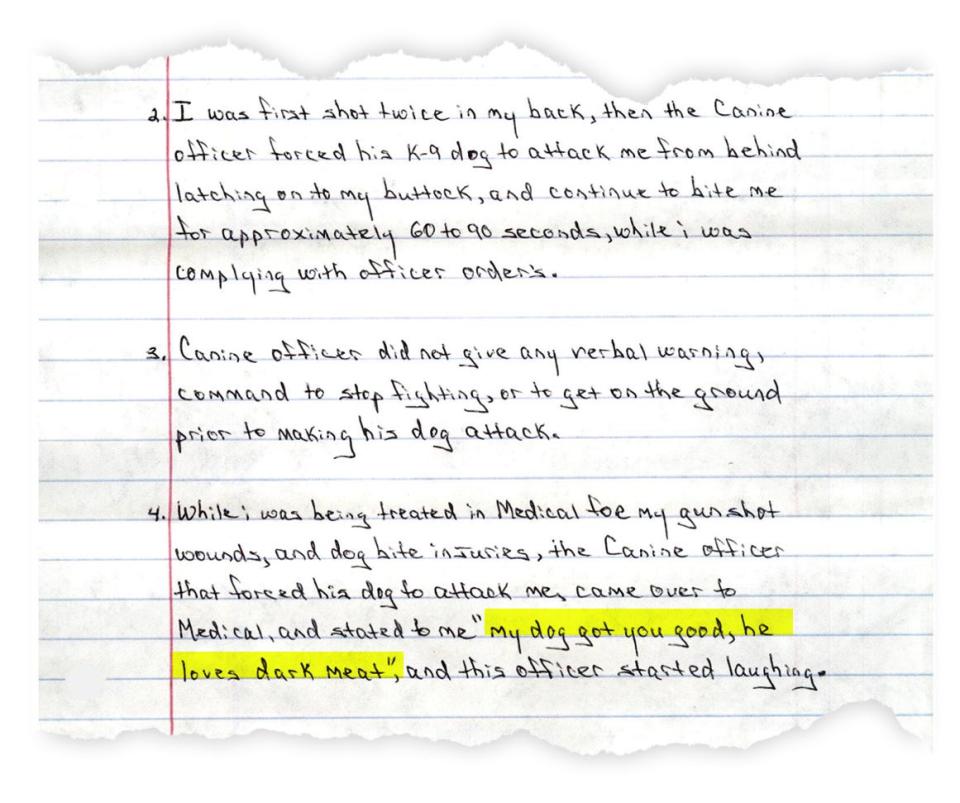 2. I was first shot twice in my back, then the Canine
officer forced his K-9 dog to attack me from behind
latching on to my buttock, and continue to bite me
for approximately 60 to 90 seconds, while i was
complying with officer order's.
3. Canine officer did not give any verbal warning,
command to stop fighting, or to get on the ground
prior to making his dog attack.
4. While i was being treated in Medical foe my gunshot
wounds, and dog bite injuries, the Canine officer
that forced his dog to attack me, came over to
Medical, and stated to me "my dog got you good, he
loves dark meat", and this officer started laughing.